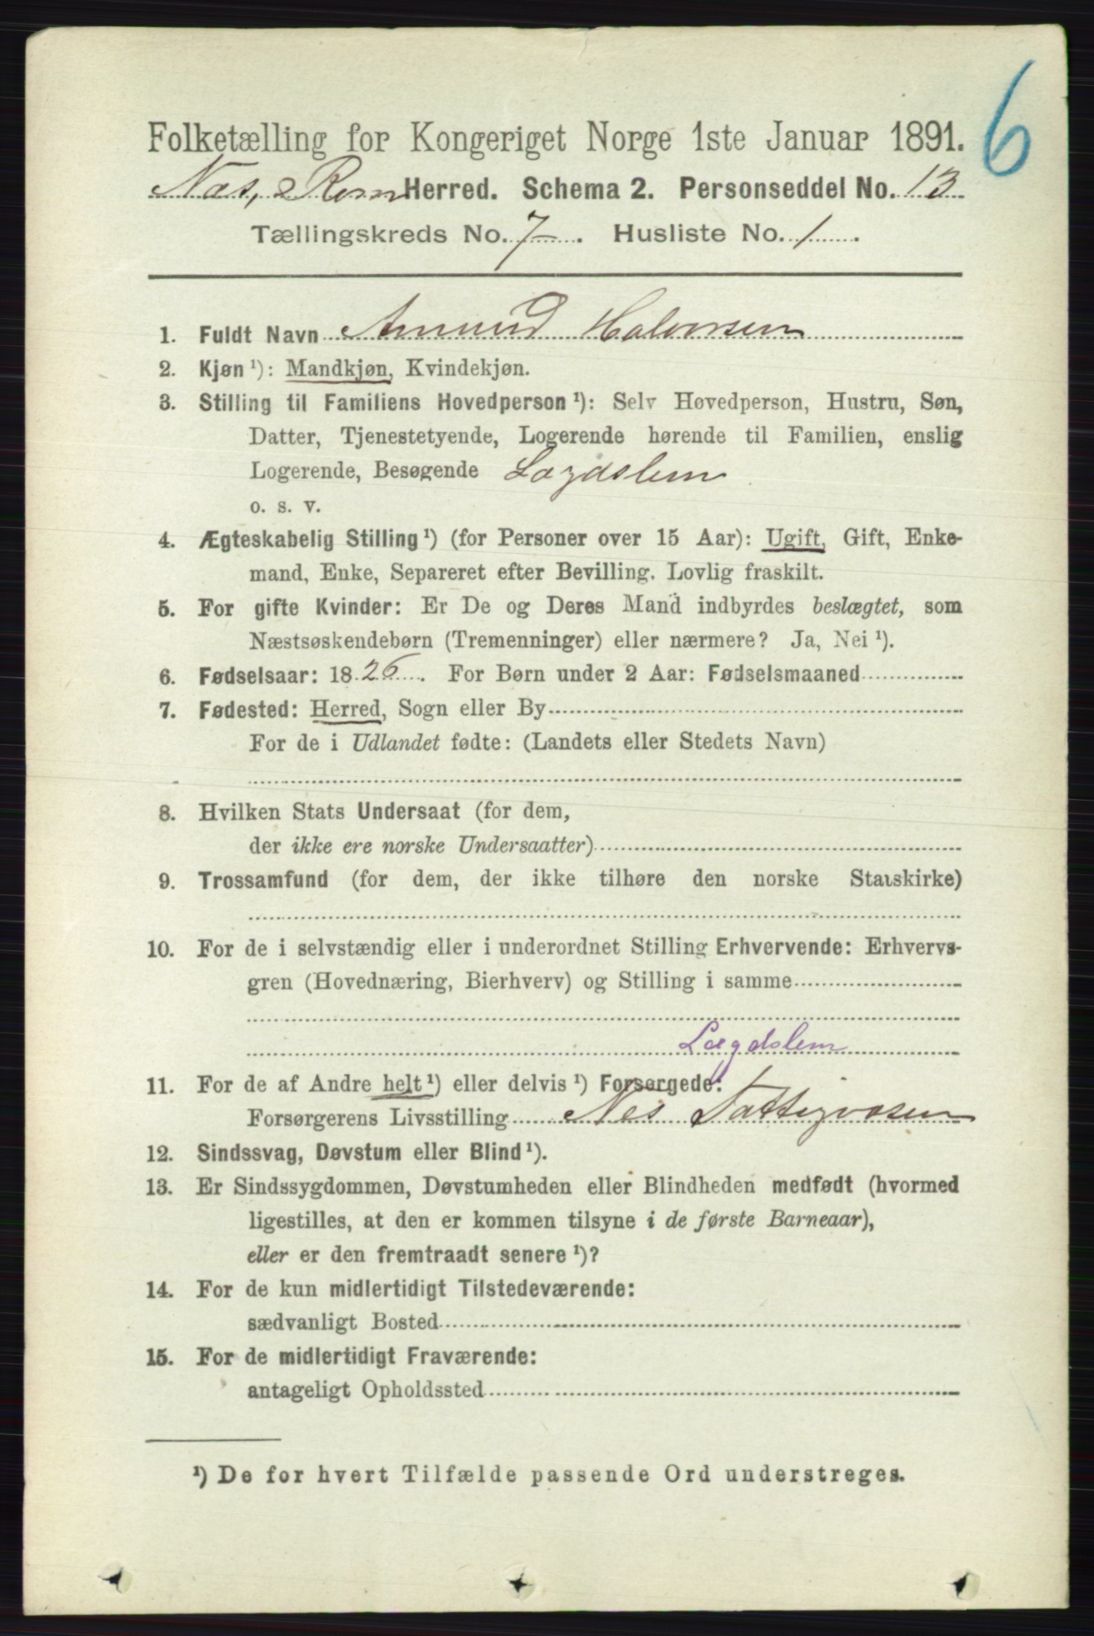 6
Folketælling for Kongeriget Norge 1ste Januar 1891.
Næs, Rom Herred. Schema 2. Personseddel No. 13
Tællingskreds No. 7. Husliste No. 1.
1. Fuldt Navn Amund Halvorsen
2. Kjøn ¹): Mandkjøn, Kvindekjøn.
3. Stilling til Familiens Hovedperson ¹): Selv Hovedperson, Hustru, Søn,
Datter, Tjenestetyende, Logerende hørende til Familien, enslig
Logerende, Besøgende Lægdslem
o. s. v.
4. Ægteskabelig Stilling ¹) (for Personer over 15 Aar): Ugift, Gift, Enke-
mand, Enke, Separeret efter Bevilling. Lovlig fraskilt.
5. For gifte Kvinder: Er De og Deres Mand indbyrdes beslægtet, som
Næstsøskendebørn (Tremenninger) eller nærmere? Ja, Nei ¹).
6. Fødselsaar: 1826. For Børn under 2 Aar: Fødselsmaaned
7. Fødested: Herred, Sogn eller By
For de i Udlandet fødte: (Landets eller Stedets Navn)
8. Hvilken Stats Undersaat (for dem,
der ikke ere norske Undersaatter)
9. Trossamfund (for dem, der ikke tilhøre den norske Statskirke)
10. For de i selvstændig eller i underordnet Stilling Erhvervende: Erhvervs-
gren (Hovednæring, Bierhverv) og Stilling i samme
Lægdslem
11. For de af Andre helt ¹) eller delvis ¹) Forsørgede:
Forsørgerens Livsstilling Nes Fattigvæsen
12. Sindssvag, Døvstum eller Blind ¹).
13. Er Sindssygdommen, Døvstumheden eller Blindheden medfødt (hvormed
ligestilles, at den er kommen tilsyne i de første Barneaar),
eller er den fremtraadt senere ¹)?
14. For de kun midlertidigt Tilstedeværende:
sædvanligt Bosted
15. For de midlertidigt Fraværende:
antageligt Opholdssted
¹) De for hvert Tilfælde passende Ord understreges.